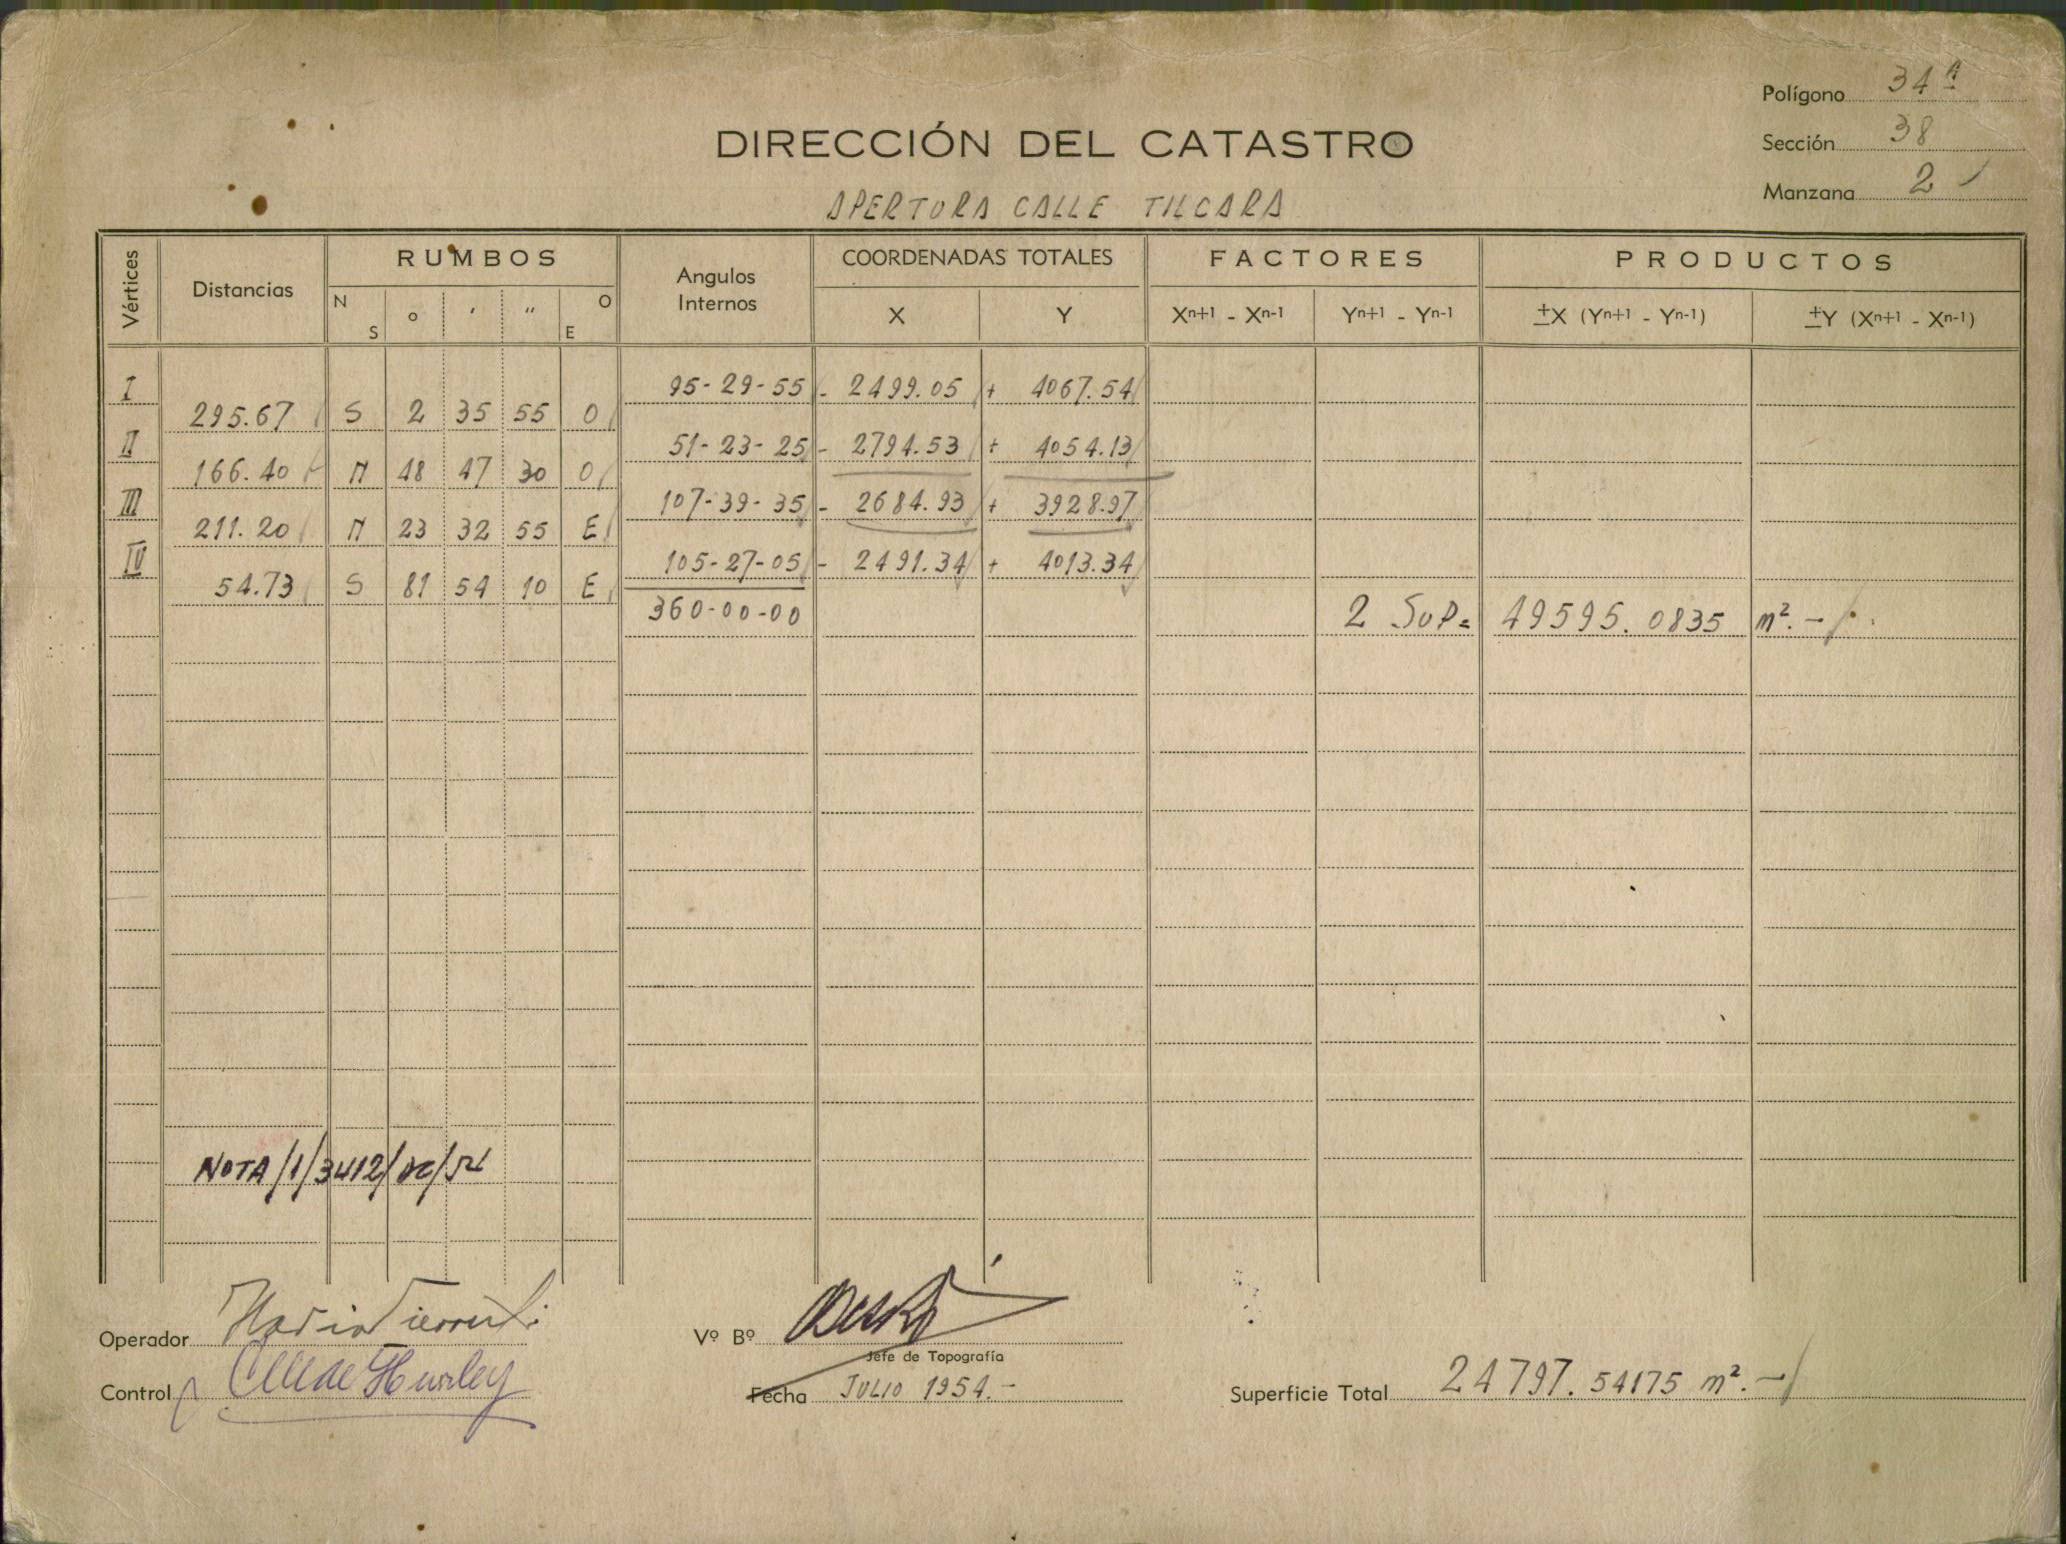 Polígono 34ᴬ
DIRECCIÓN DEL CATASTRO
Sección 38
Manzana 2
APERTURA CALLE TILCARA
Vértices Distancias RUMBOS Angulos Internos COORDENADAS TOTALES FACTORES PRODUCTOS
N S o ' " O E X Y Xn+1 - Xn-1 Yn+1 - Yn-1 ±X (Yn+1 - Yn-1) ±Y (Xn+1 - Xn-1)
I 95-29-55 - 2499.05 + 4067.54
295.67 S 2 35 55 O
II 51-23-25 - 2794.53 + 4054.13
166.40 N 48 47 30 O
III 107-39-35 - 2684.93 + 3928.97
211.20 N 23 32 55 E
IV 105-27-05 - 2491.34 + 4013.34
54.73 S 81 54 10 E
360-00-00 2 SUP= 49595.0835 m². -
NOTA/1/3412/DC/54
Operador
Vº Bº
Jefe de Topografía
Control
Fecha JULIO 1954.-
Superficie Total 24797.54175 m².-